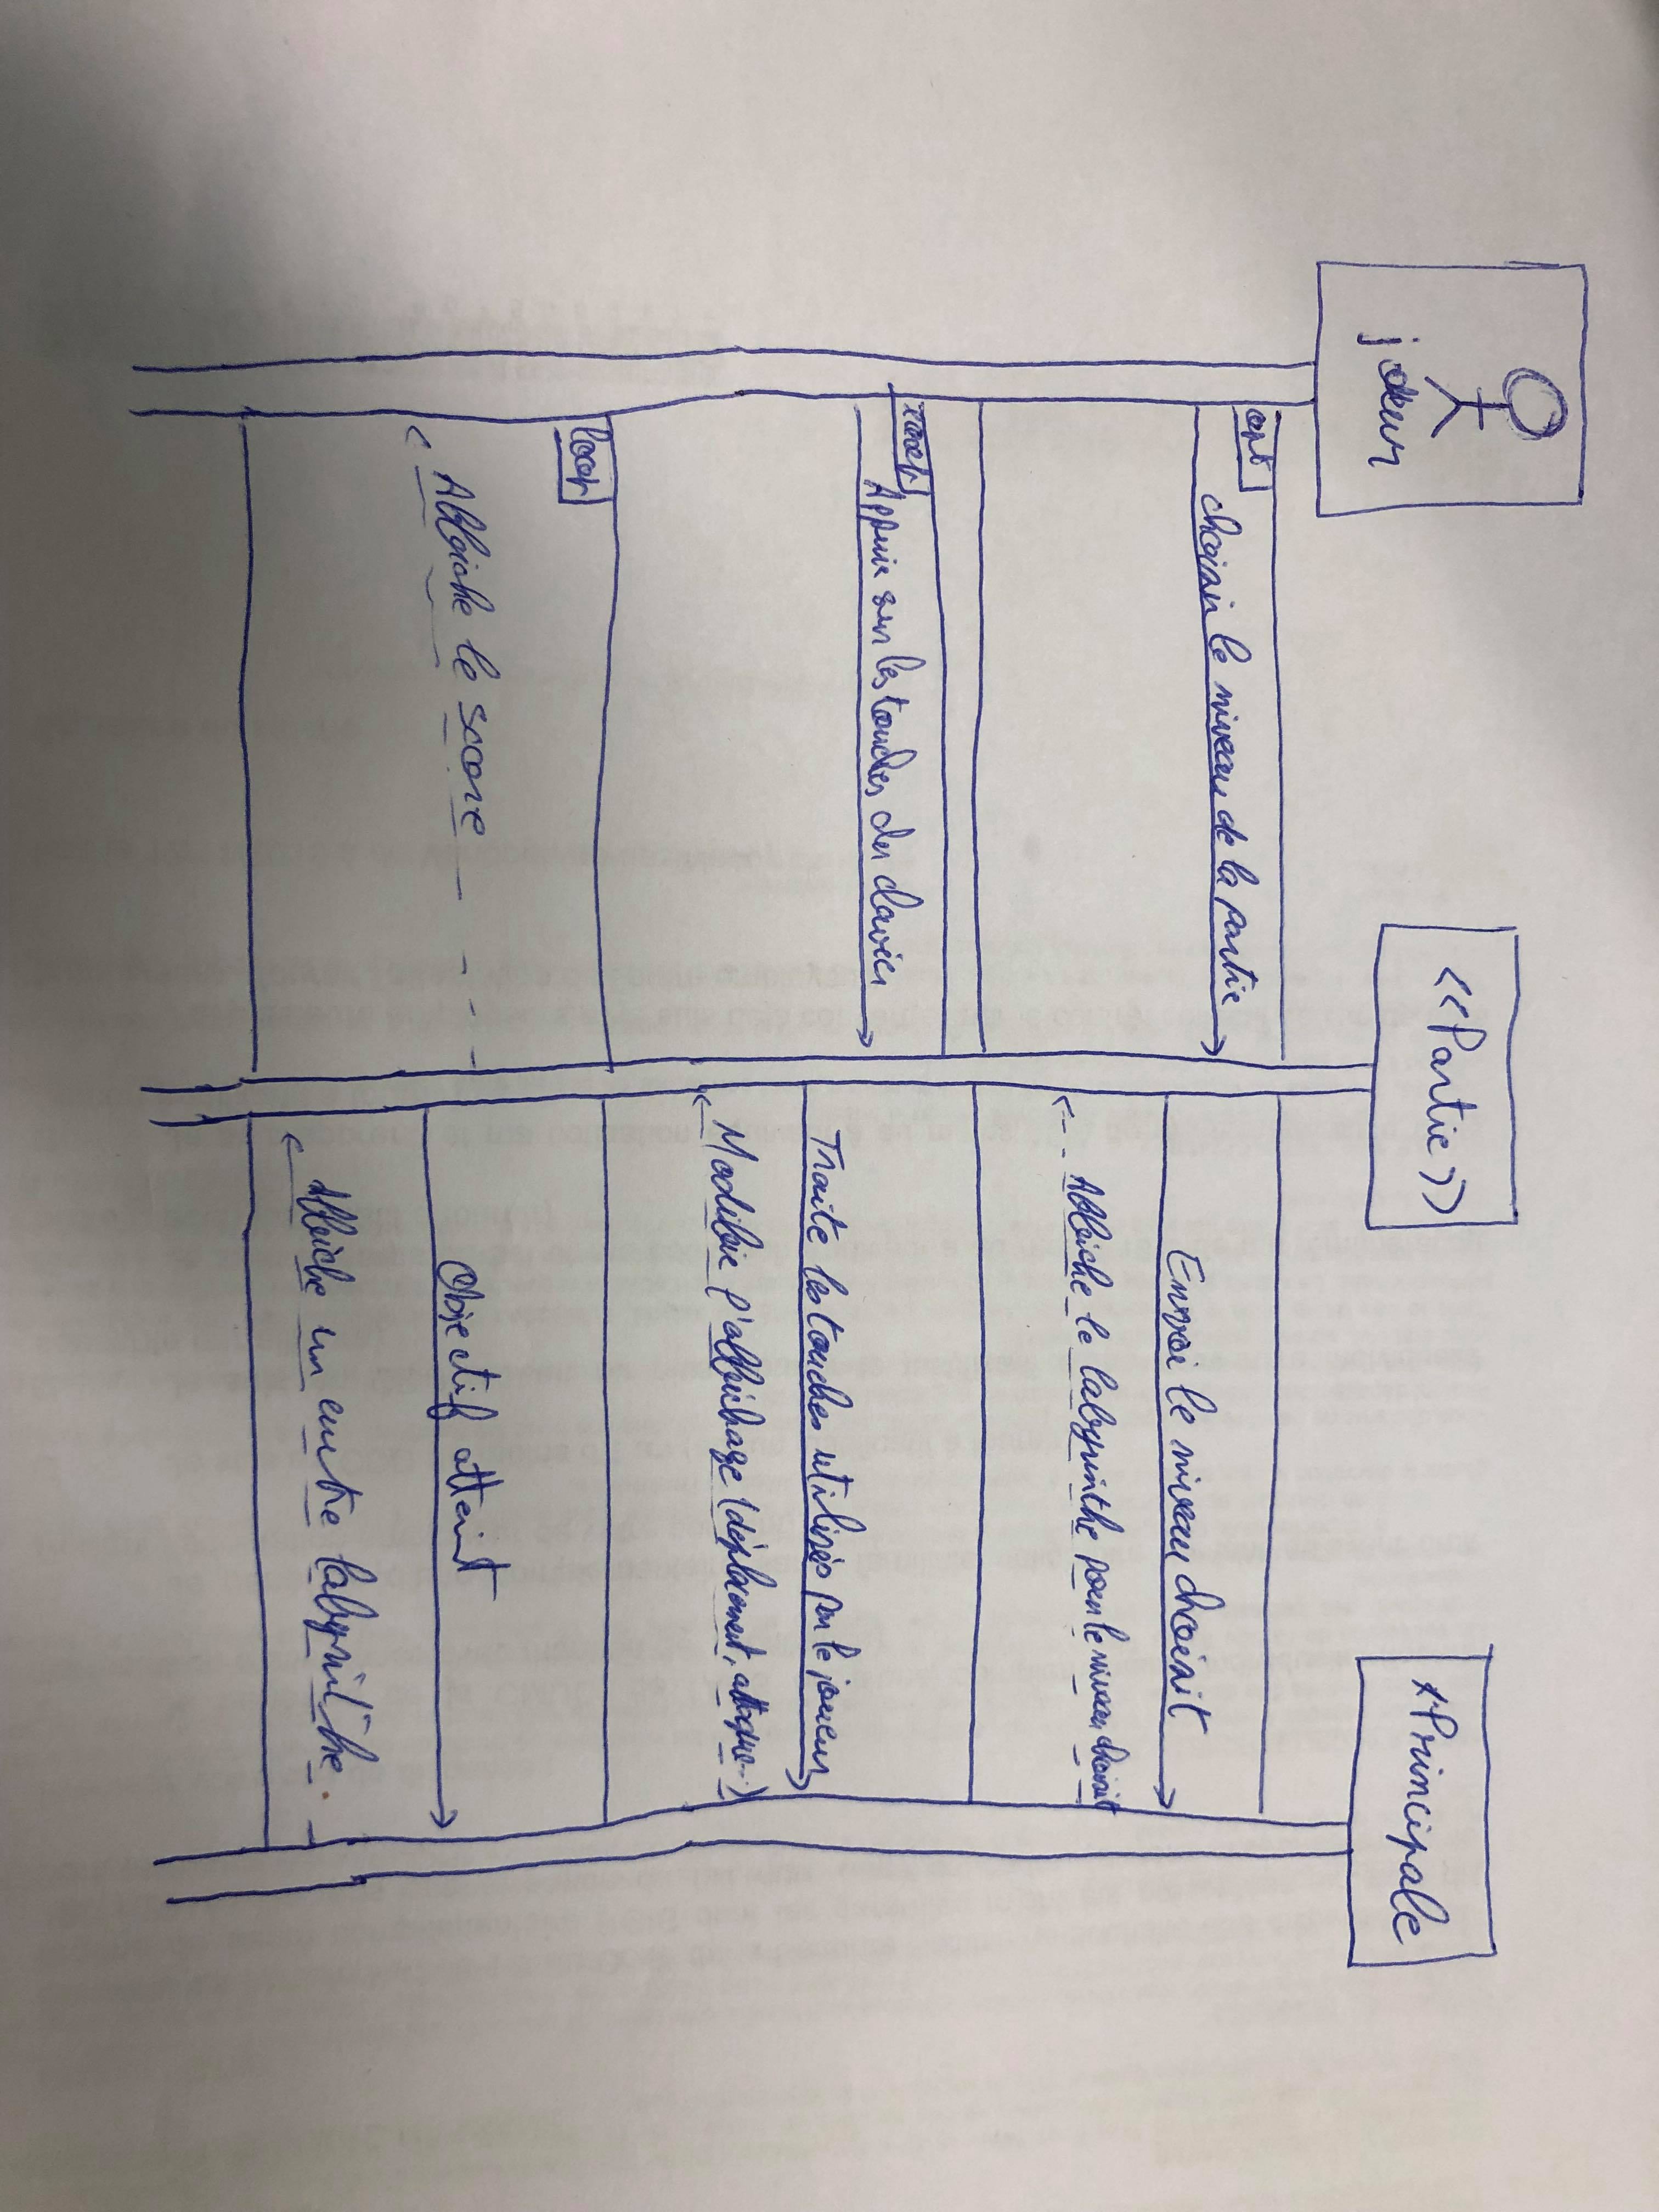 joueur
<<Partie>>
Principale
opt
choisir le niveau de la partie
Envoi le niveau choisit
Affiche le labyrinthe pour le niveau choisit
Appuie sur les touches du clavier
Traite les touches utilisés par le joueur
Modifie l'affichage (déplacement, attaque...)
loop
Objectif atteint
Affiche le score
Affiche un autre labyrinthe.